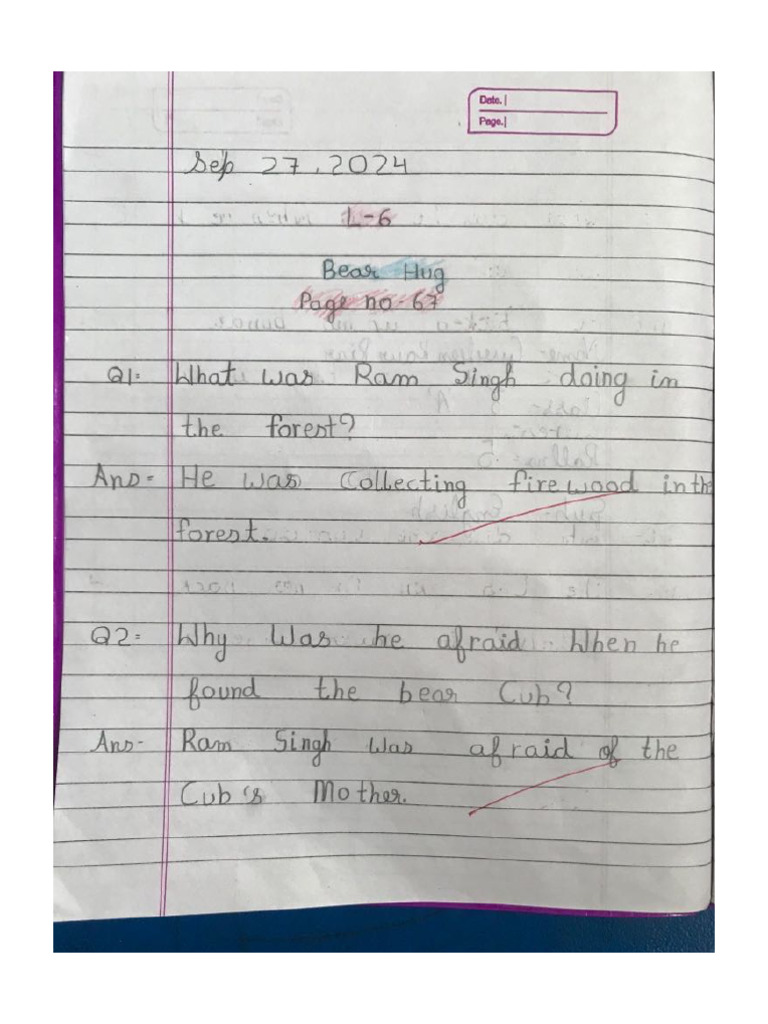 Date.
Page.
Sep 27, 2024
L-6
Bear Hug
Page no-67
Q1= What was Ram Singh doing in
the forest?
Ans= He was Collecting firewood in the
forest.
Q2= Why Was he afraid When he
found the bear Cub?
Ans- Ram Singh Was afraid of the
Cub's Mother.